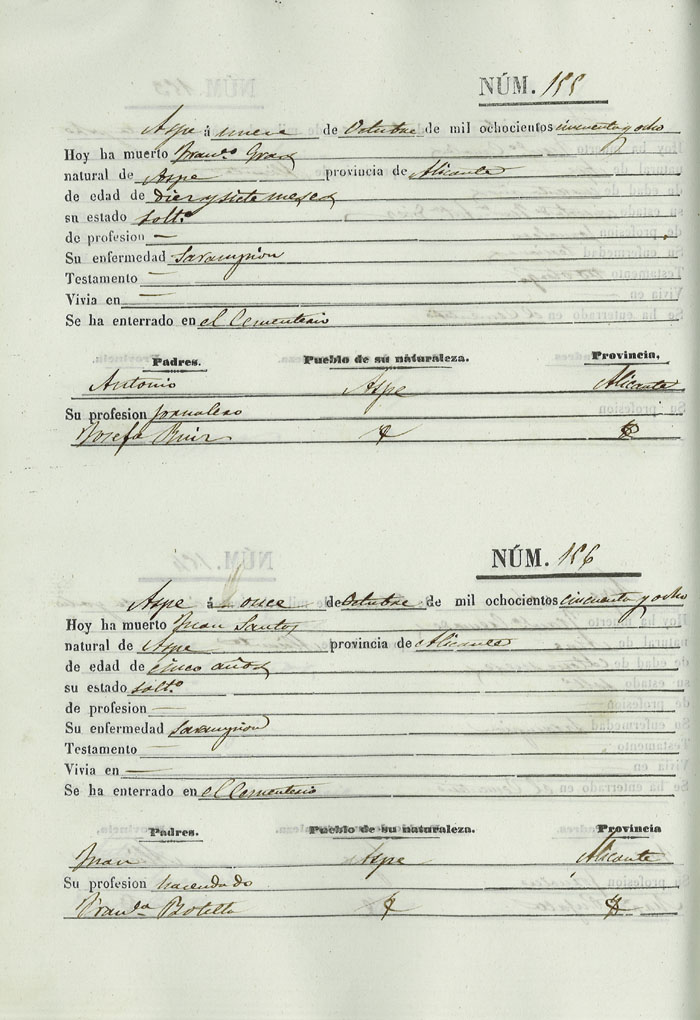 NÚM. 155
Aspe á once de Octubre de mil ochocientos cincuenta y ocho
Hoy ha muerto Fran.co Gras
natural de Aspe provincia de Alicante
de edad de diez y siete meses
su estado solt.o
de profesion —
Su enfermedad Sarampion
Testamento —
Vivia en —
Se ha enterrado en el Cementerio
Padres. Pueblo de su naturaleza. Provincia,
Antonio Aspe Alicante
Su profesion jornalero
Josefa Ruiz
NÚM. 156
Aspe á once de Octubre de mil ochocientos cincuenta y ocho
Hoy ha muerto Juan Santos
natural de Aspe provincia de Alicante
de edad de cinco años
su estado solt.o
de profesion —
Su enfermedad Sarampion
Testamento —
Vivia en —
Se ha enterrado en el Cementerio
Padres. Pueblo de su naturaleza. Provincia
Juan Aspe Alicante
Su profesion hacendado
Fran.ca Botella